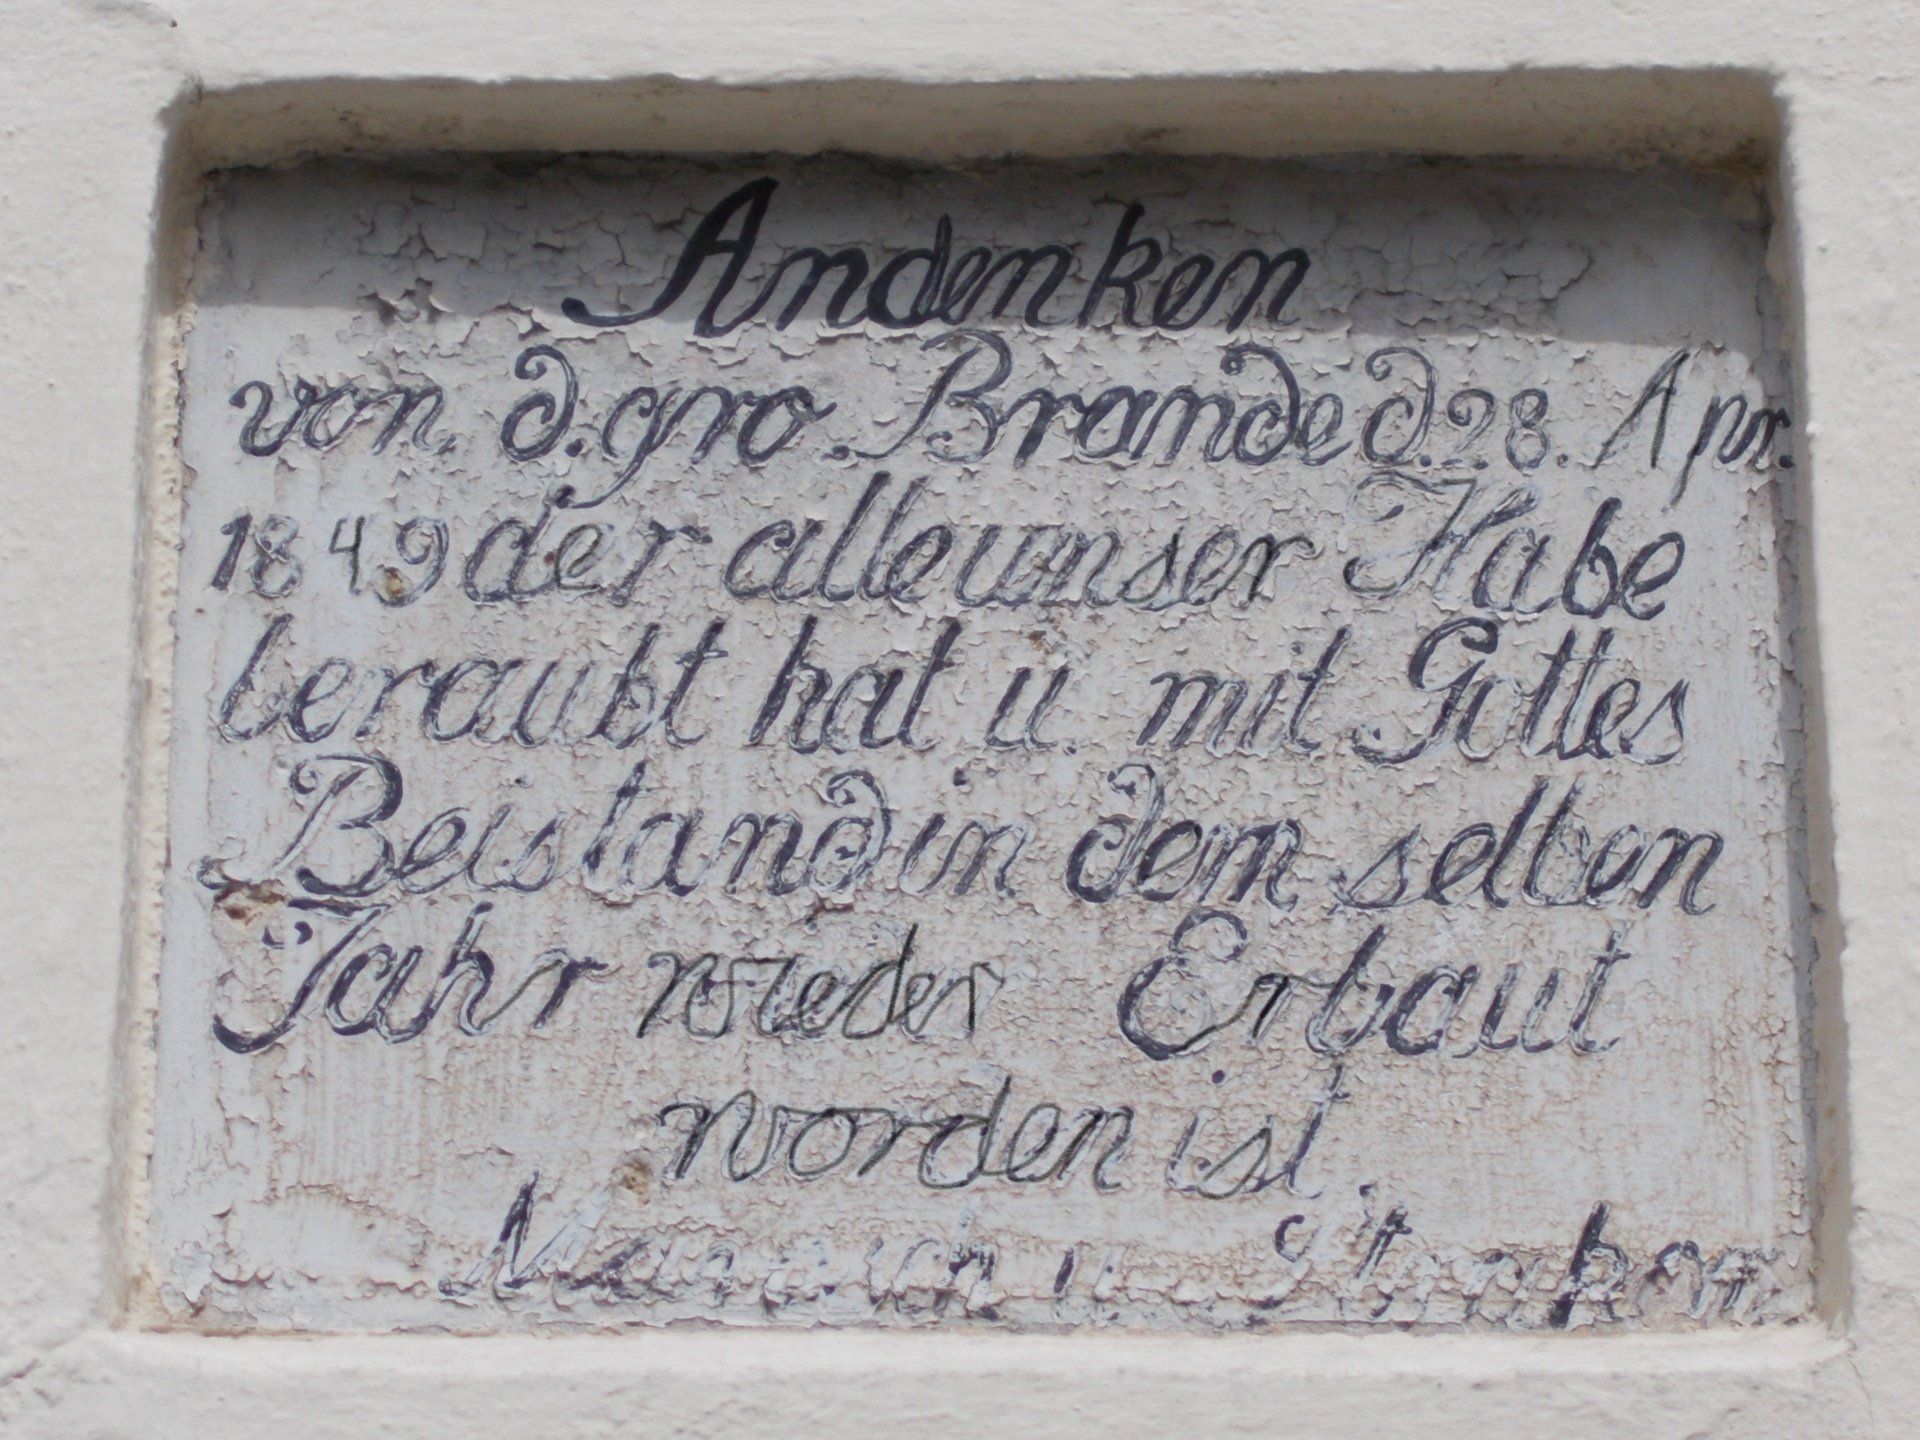 Andenken
von d. gro. Brande d. 28. Apr.
1849 der alle unser Habe
beraubt hat u. mit Gottes
Beistand in dem selben
Jahr wieder Erbaut
worden ist
u.